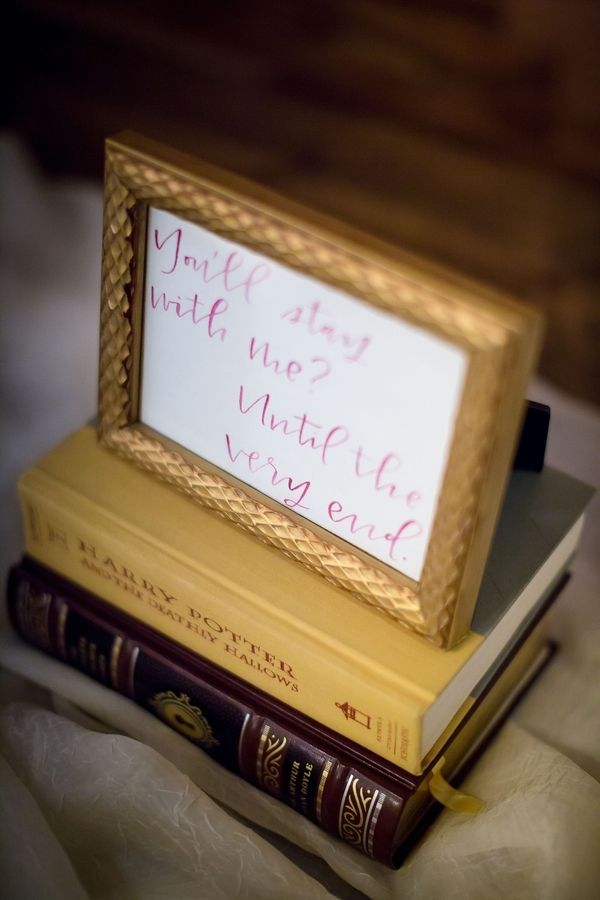 You'll stay
with me?
Until the
very end.
HARRY POTTER
AND THE DEATHLY HALLOWS
ARTHUR
DOYLE